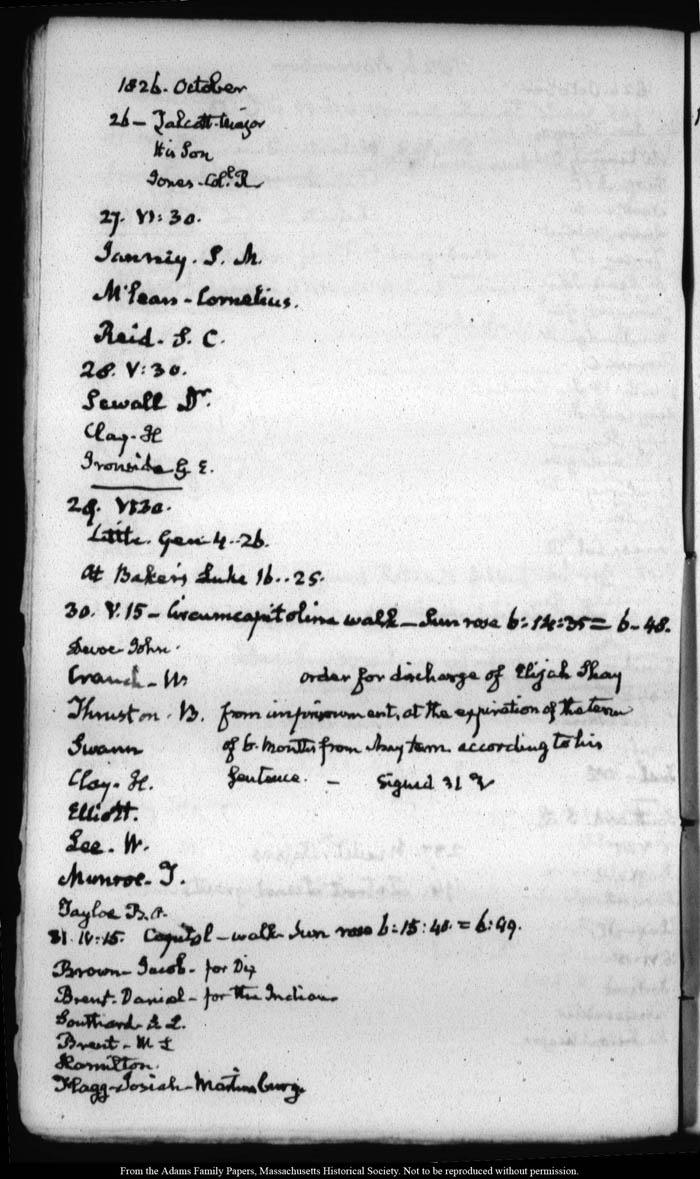 1826. October
26 - Talcott. Major
His Son
Jones - Col. R
27. VI: 30.
Janney. S. M.
McLean - Cornelius.
Reid. S. C.
28. V: 30.
Sewall Dr.
Clay - H
Ironside G. E.
29. V:30.
Little. Gen. 4..26.
At Baker's Luke 16..25.
30. V. 15 - Circumcapitoline walk - Sun rose 6: 14: 35 = 6 - 48.
Devoe John.
Cranch - W order for discharge of Elijah Shay
Thruston. B. from imprisonment, at the expiration of the term
Swann of 6. months from May term according to his
Clay. H. Sentence. - Signed 31
Elliott.
Lee. W.
Munroe. T.
Tayloe B. O.
31. IV: 15. Capitol - walk Sun rose 6: 15: 40. = 6: 49.
Brown - Jacob - for Dix
Brent. Daniel - for the Indians
Southard. S. L.
Brent - W L
Hamilton.
Flagg - Josiah - Martinsburg
From the Adams Family Papers, Massachusetts Historical Society. Not to be reproduced without permission.